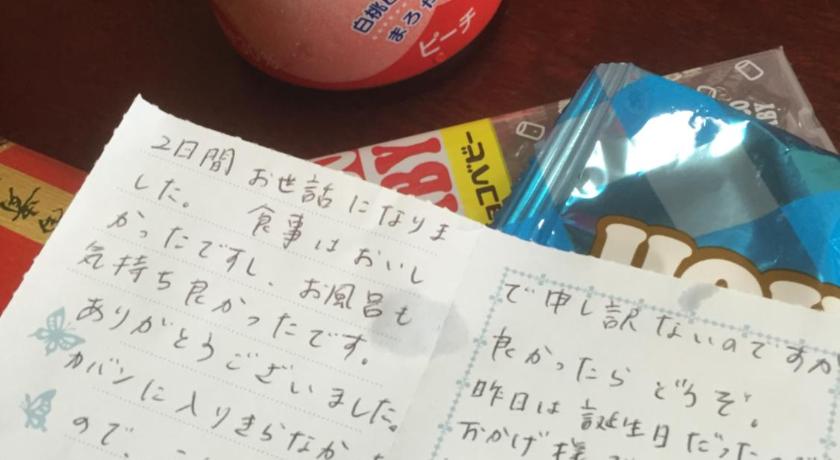 白桃
まろや
ピーチ
BABY
ベビー
2日間 お世話になりま
した。 食事はおいし
かったですし、お風呂も
気持ち良かったです。
ありがとうございました。
カバンに入りきらなか
ので、
で申し訳ないのですが
良かったら どうぞ。
昨日は 誕生日だった
万かげ様で